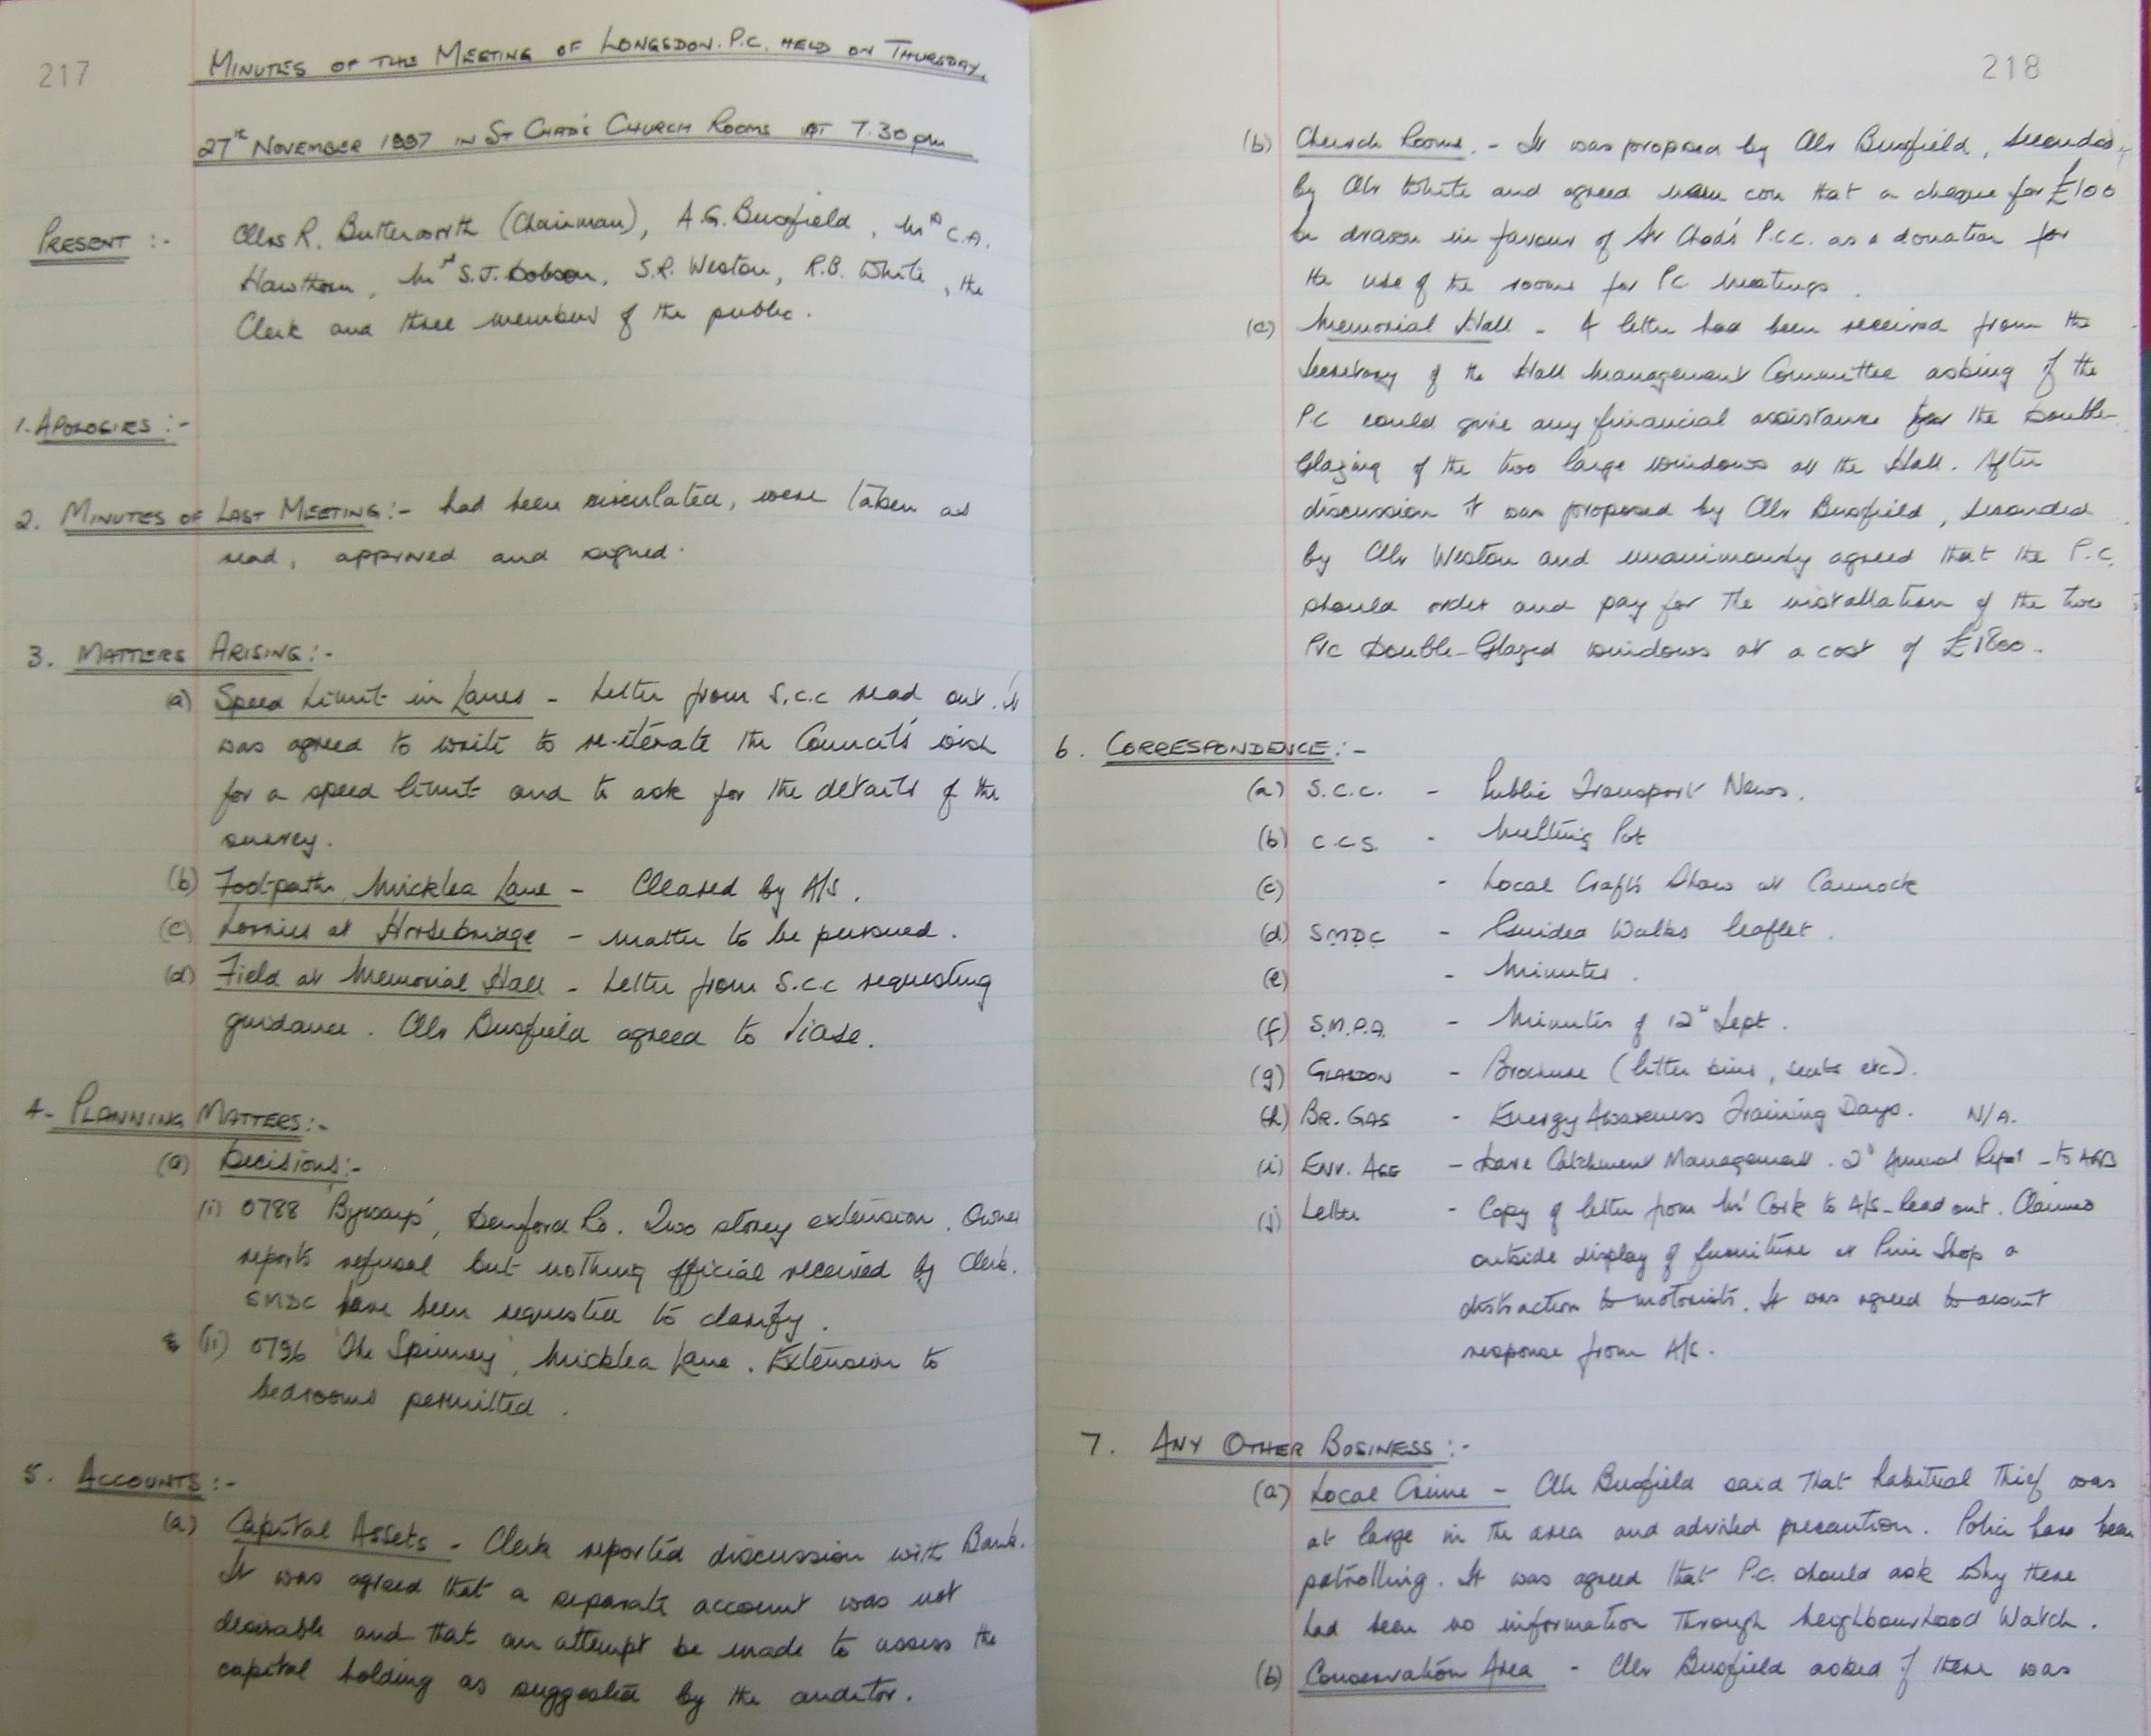 217
MINUTES OF THE MEETING OF LONGSDON. P.C. HELD ON THURSDAY,
27th NOVEMBER 1997 IN ST CHAD'S CHURCH ROOMS AT 7.30 pm
PRESENT :- Cllrs R. Butterworth (Chairman), A.G. Busfield, Mrs C.A.
Hawthorn, Mrs S.J. Dobson, S.R. Weston, R.B. White, the
Clerk and three members of the public.
1. APOLOGIES :-
2. MINUTES OF LAST MEETING :- had been circulated, were taken as
read, approved and signed.
3. MATTERS ARISING :-
(a) Speed Limit in Lanes - Letter from S.C.C read out. It
was agreed to write to re-iterate the Council's wish
for a speed limit and to ask for the details of the
survey.
(b) Footpaths, Micklea Lane - Cleared by A/S.
(c) Lorries at Horsebridge - Matter to be pursued.
(d) Field at Memorial Hall - Letter from S.C.C requesting
guidance. Cllr Busfield agreed to liase.
4. PLANNING MATTERS :-
(a) Decisions :-
(i) 0788 'Byways', Denford Rd. Two storey extension. Owner
reports refusal but nothing official received by Clerk.
SMDC have been requested to clarify.
(ii) 0796 'The Spinney', Micklea Lane. Extension to
bedrooms permitted.
5. ACCOUNTS :-
(a) Capital Assets - Clerk reported discussion with Bank.
It was agreed that a separate account was not
desirable and that an attempt be made to assess the
capital holding as suggested by the auditor.
218
(b) Church Rooms. - It was proposed by Cllr Busfield, seconded
by Cllr White and agreed nem con that a cheque for £100
be drawn in favour of St Chad's P.C.C. as a donation for
the use of the rooms for PC meetings.
(c) Memorial Hall - A letter had been received from the
Secretary of the Hall Management Committee asking if the
PC could give any financial assistance for the Double-
Glazing of the two large windows at the Hall. After
discussion it was proposed by Cllr Busfield, seconded
by Cllr Weston and unanimously agreed that the P.C.
should order and pay for the installation of the two
PVC Double-Glazed windows at a cost of £1800.
6. CORRESPONDENCE :-
(a) S.C.C. - Public Transport News.
(b) C.C.S. - Melting Pot
(c) - Local Crafts Show at Cannock
(d) SMDC - Guided Walks leaflet.
(e) - Minutes.
(f) S.M.P.A. - Minutes of 12th Sept.
(g) GLASDON - Brochure (litter bins, seats etc).
(h) BR. GAS - Energy Awareness Training Days. N/A.
(i) ENV. AGE - Dane Catchment Management. 2nd Annual Report - to AGB
(j) Letter - Copy of letter from Mr Cork to A/S - Read out. Claimed
outside display of furniture at Pine Shop a
distraction to motorists. It was agreed to await
response from A/S.
7. ANY OTHER BUSINESS :-
(a) Local Crime - Cllr Busfield said that habitual thief was
at large in the area and advised precaution. Police have been
patrolling. It was agreed that P.C. should ask why there
had been no information through Neighbourhood Watch.
(b) Conservation Area - Cllr Busfield asked if there was